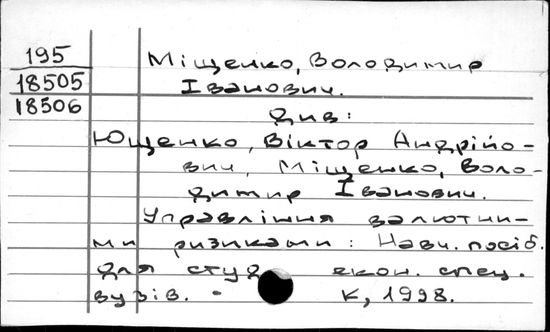 195
18505
18506
Міщенко, Володимир
Іванович.
див:
Ющенко, Віктор Андрійо-
вич, Міщенко, Воло-
димир Іванович.
Управління валютни-
ми ризиками: Навч. посіб.
для студ. екон. спец.
вузів. - К, 1998.